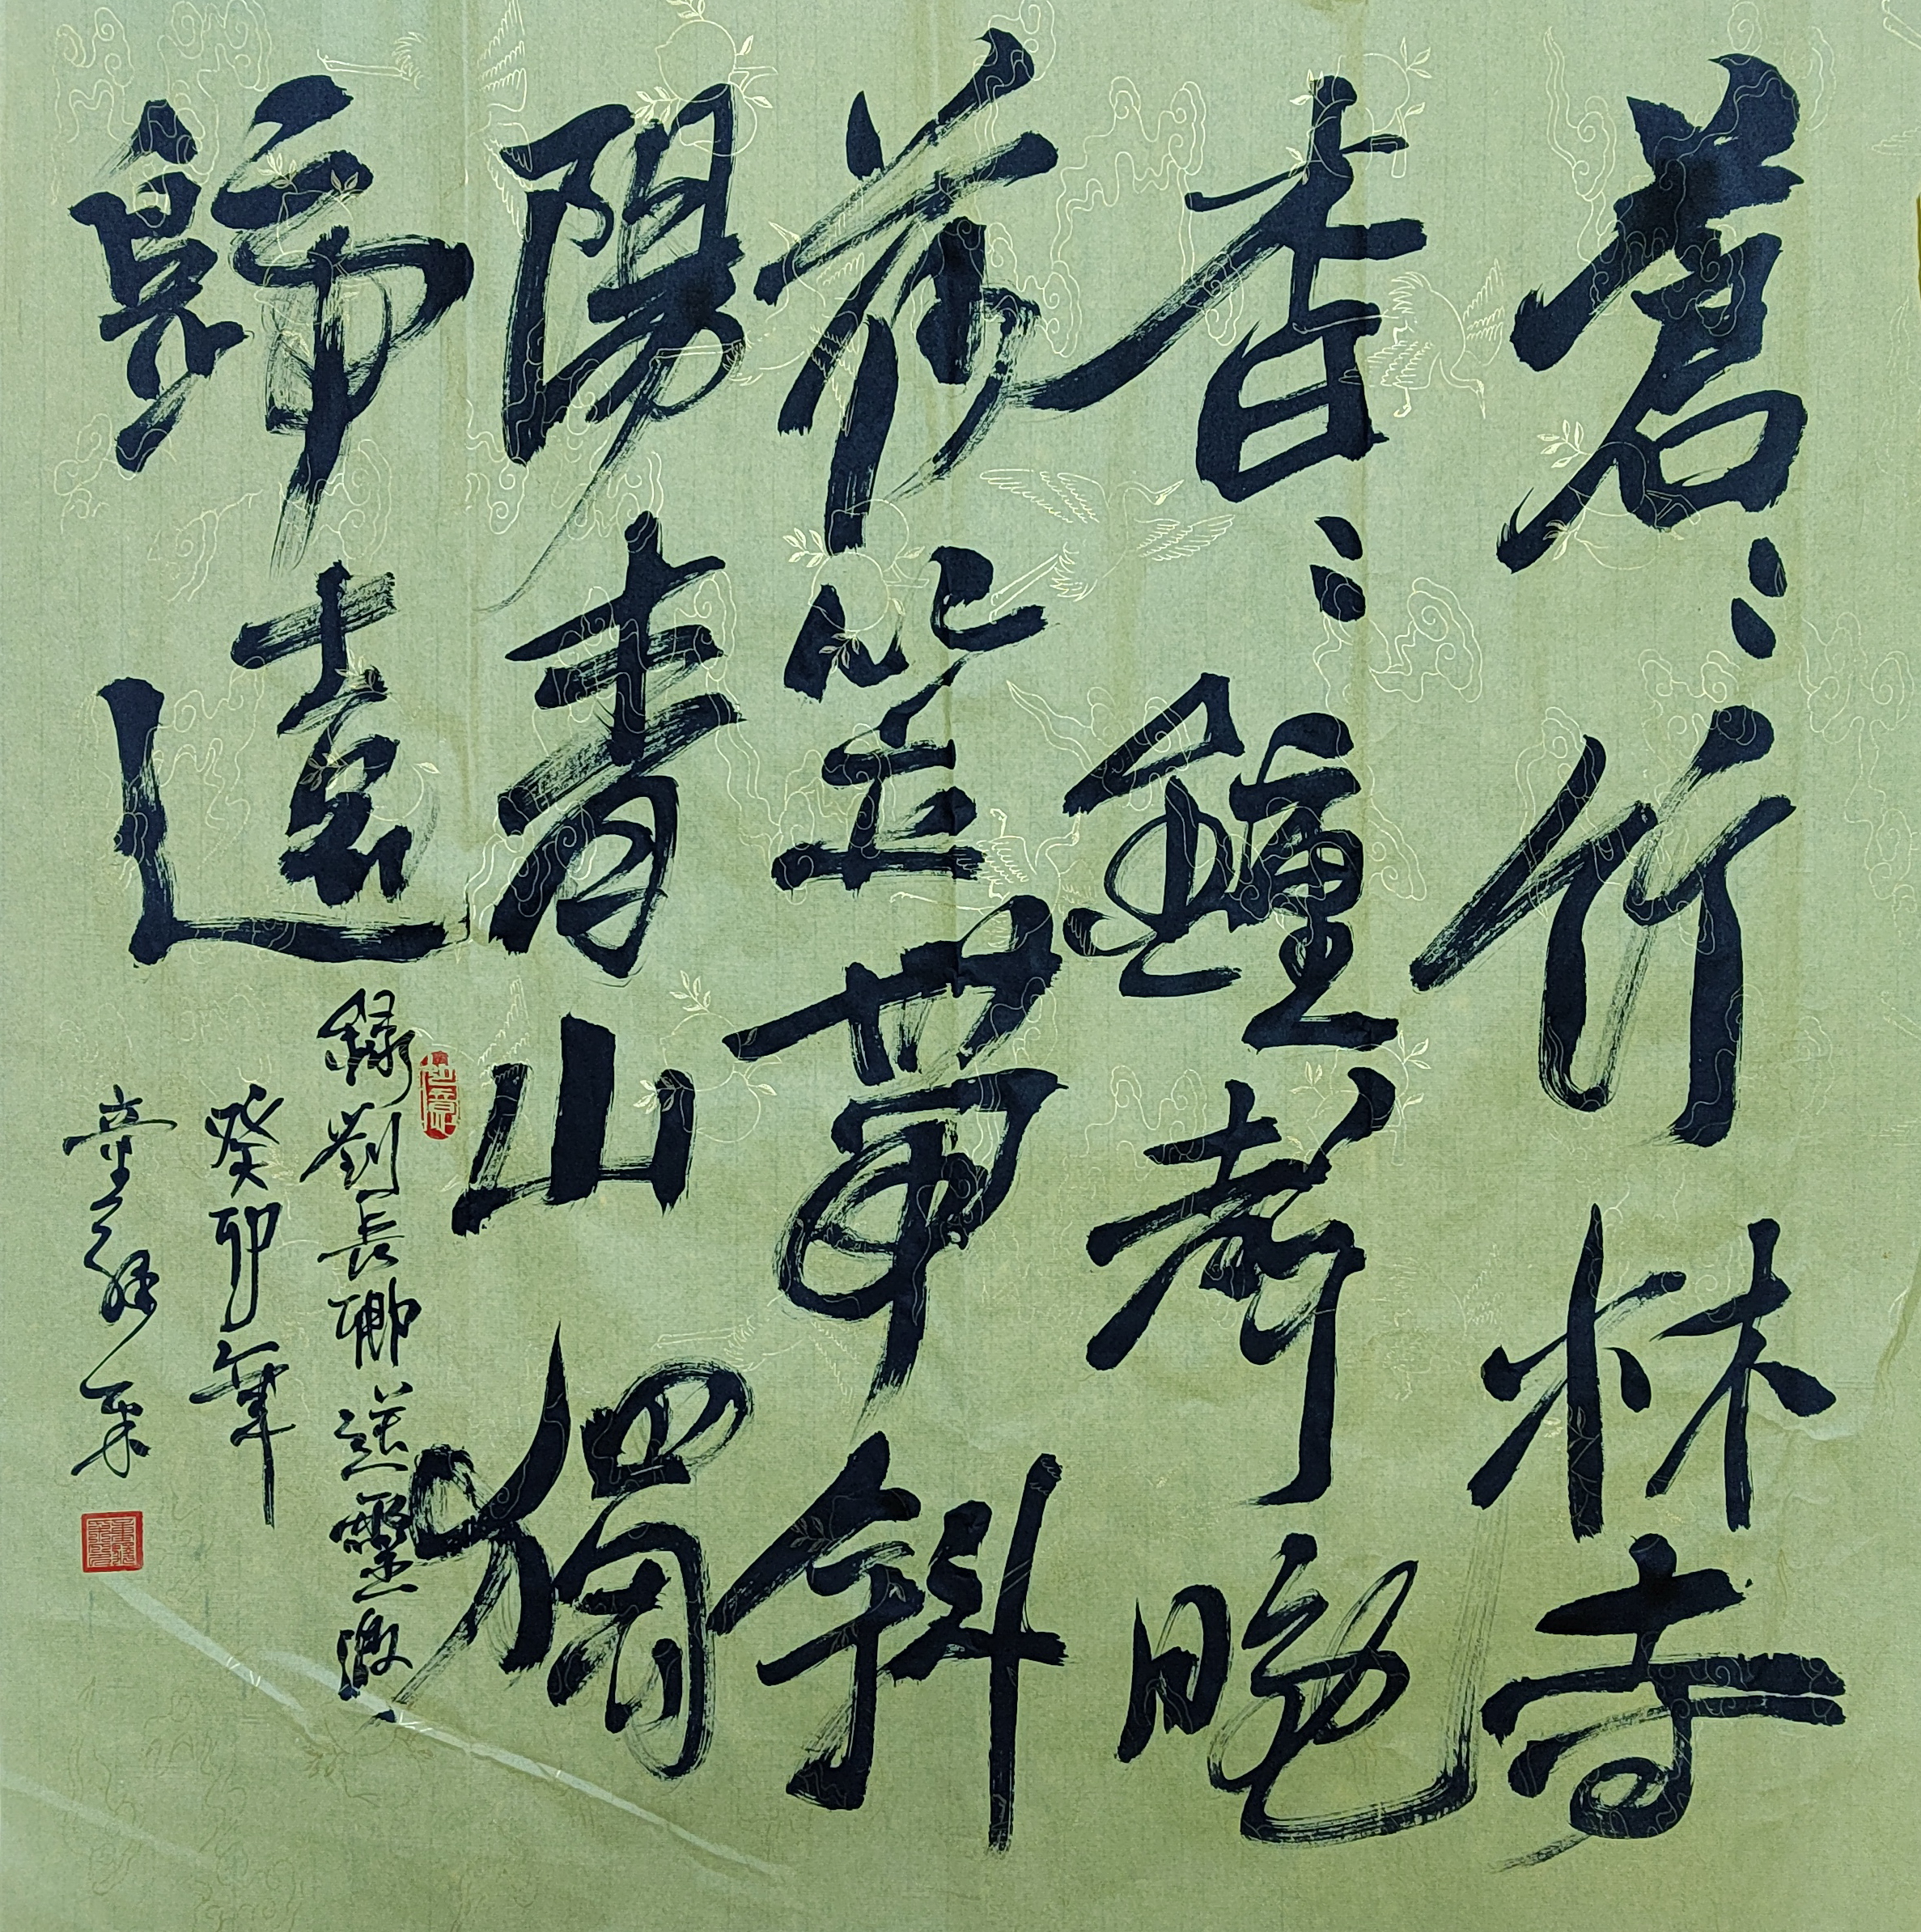 蒼〻竹林寺
杳〻鐘聲晚
荷笠帶斜
陽青山獨
歸遠
録劉長卿送靈澈
癸卯年